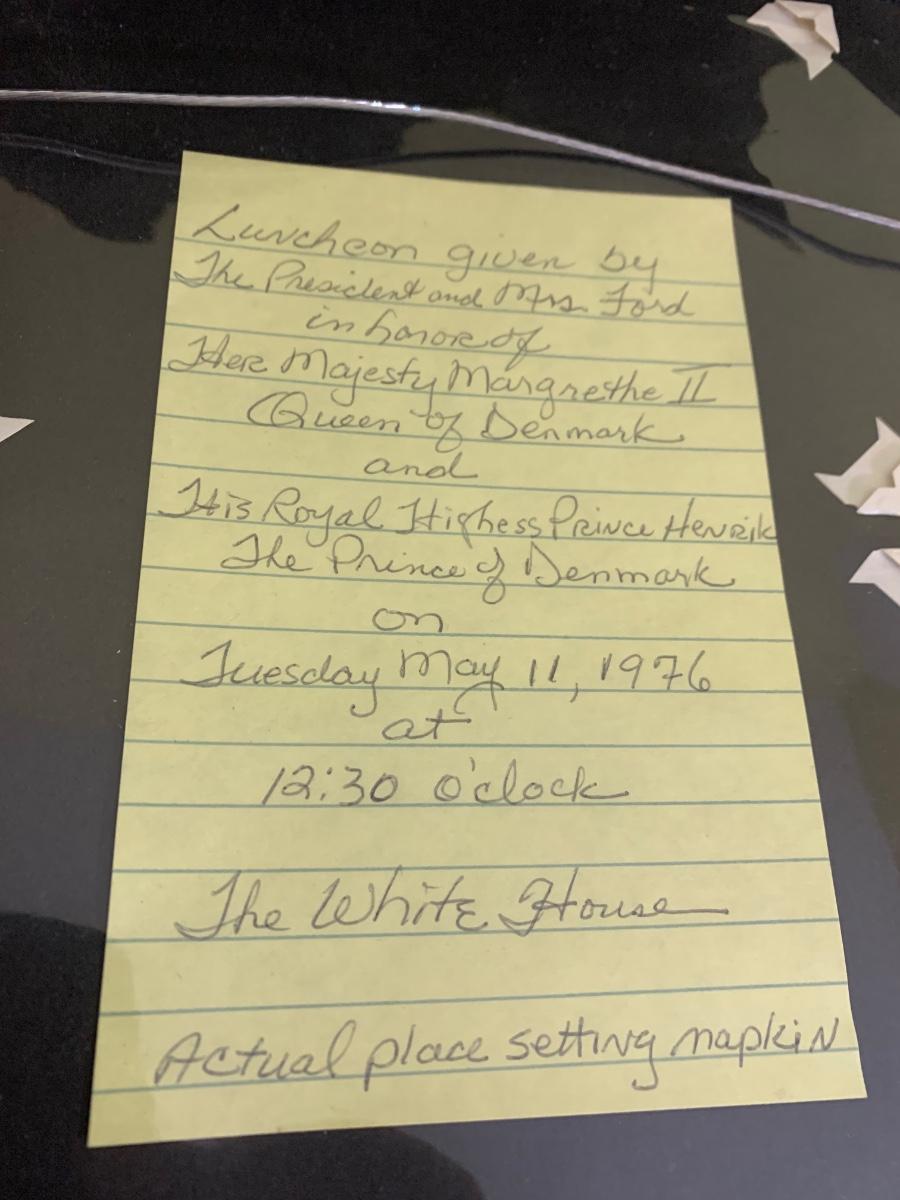 Luncheon given by
The President and Mrs. Ford
in honor of
Her Majesty Margrethe II
Queen of Denmark
and
His Royal Highess Prince Henrik
The Prince of Denmark
on
Tuesday May 11, 1976
at
12:30 o'clock
The White House
Actual place setting napkin